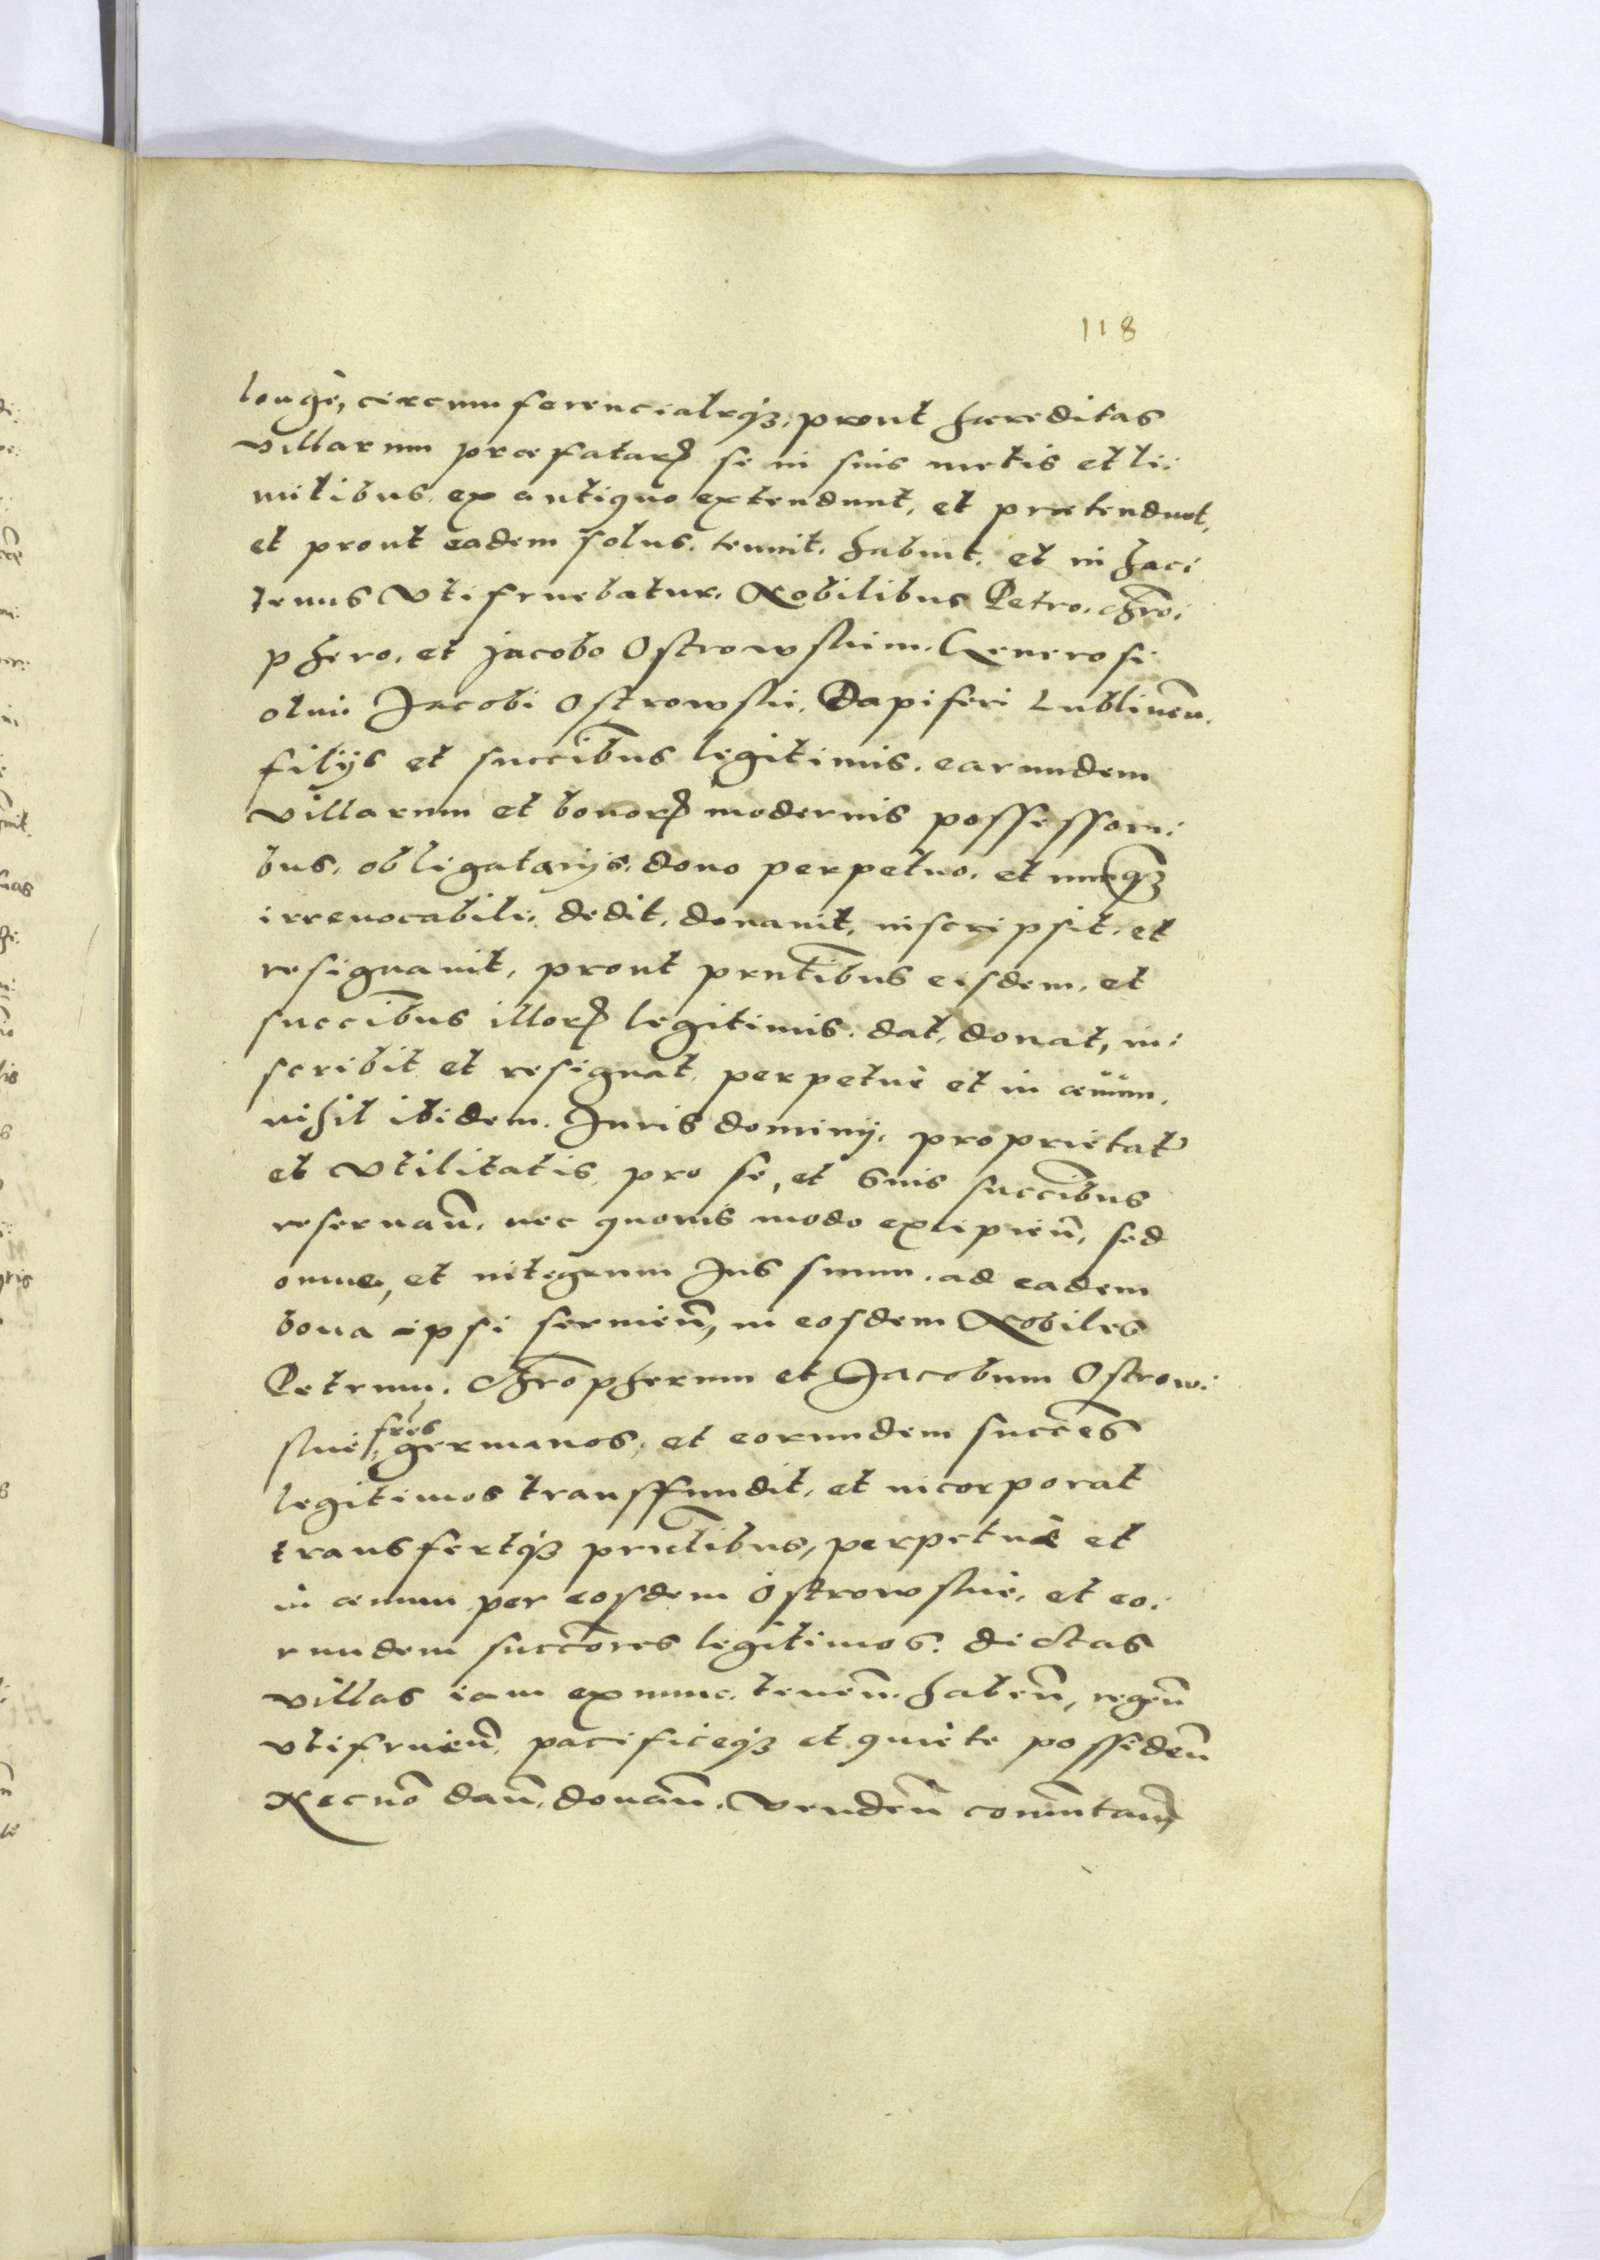 118
longè, circumferencialrq́ꝫ, prout hæreditas
villarum præfatarꝝ se in suis metis et li:
mitibus ex antiquo extendunt, et prætendunt,
et prout eadem solus tenuit, habuit, et in hac:
tenus Vtifruebatur, Nobilibus Petro, Chro:
phero, et Jacobo Ostrowskim, Generosi
olim Jacobi Ostrowskii, Dapiferi Lublinen̄,
filijs et succibus legitimis, earundem
villarum et bonorꝝ modernis possessori:
bus, obligatarijs, dono perpetuo, et nunq́ꝫ
irreuocabili, dedit, donauit, inscripsit, et
resignauit, prout pñtibus eisdem, et
succibus illorꝝ legitimis, dat, donat, in:
scribit et resignat, perpetuè et in æuum,
nihil ibidem, Juris dominij, proprietatis
et Vtilitatis pro se, et suis succibus
reseruan̄, nec quouis modo excipien̄, sed
omne, et integrum Jus suum, ad eadem
bona ipsi seruien̄, in eosdem Nobiles
Petrum, Chropherum et Jacobum Ostrow:
skie, fres germanos, et eorundem succes
legitimos transffundit, et incorporat
transfertq́ꝫ pñtibus, perpetuè et
in æuum per eosdem Ostrowskie, et eo:
rundem succores legitimos, dictas
villas iam ex nunc, tenen̄, haben̄, regen̄
vtifruen̄, pacificeq́ꝫ et quiete possiden̄
Necnō dan̄, donan̄, Venden̄ com̄utan̄,